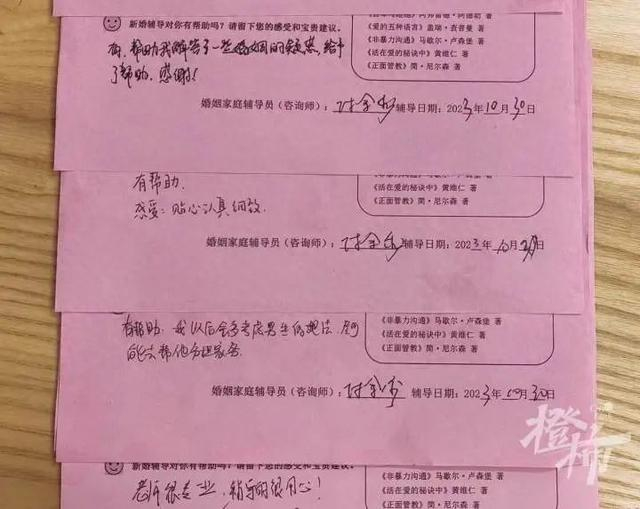 新婚辅导对你有帮助吗？请留下您的感受和宝贵建议。
有，帮助我解答了一些婚姻的疑惑，给予
了帮助，感谢！
《爱的五种语言》盖瑞·查普曼
《非暴力沟通》马歇尔·卢森堡 著
《活在爱的秘诀中》黄维仁 著
《正面管教》简·尼尔森 著
婚姻家庭辅导员（咨询师）： 辅导日期：2023年10月30日
有帮助.
感受：贴心认真细致.
《非暴力沟通》马歇尔·卢森堡 著
《活在爱的秘诀中》黄维仁 著
《正面管教》简·尼尔森 著
婚姻家庭辅导员（咨询师）： 辅导日期：2023年10月日
有帮助. 我以后会多考虑男生的想法，
帮他分担家务.
《非暴力沟通》马歇尔·卢森堡 著
《活在爱的秘诀中》黄维仁 著
《正面管教》简·尼尔森 著
婚姻家庭辅导员（咨询师）： 辅导日期：2023年10月30日
新婚辅导对你有帮助吗？请留下您的感受和宝贵建议。
老师很专业，辅导的很用心！
《非暴力沟通》马歇尔·卢森堡 著
《活在爱的秘诀中》黄维仁 著
《正面管教》简·尼尔森 著
橙柿